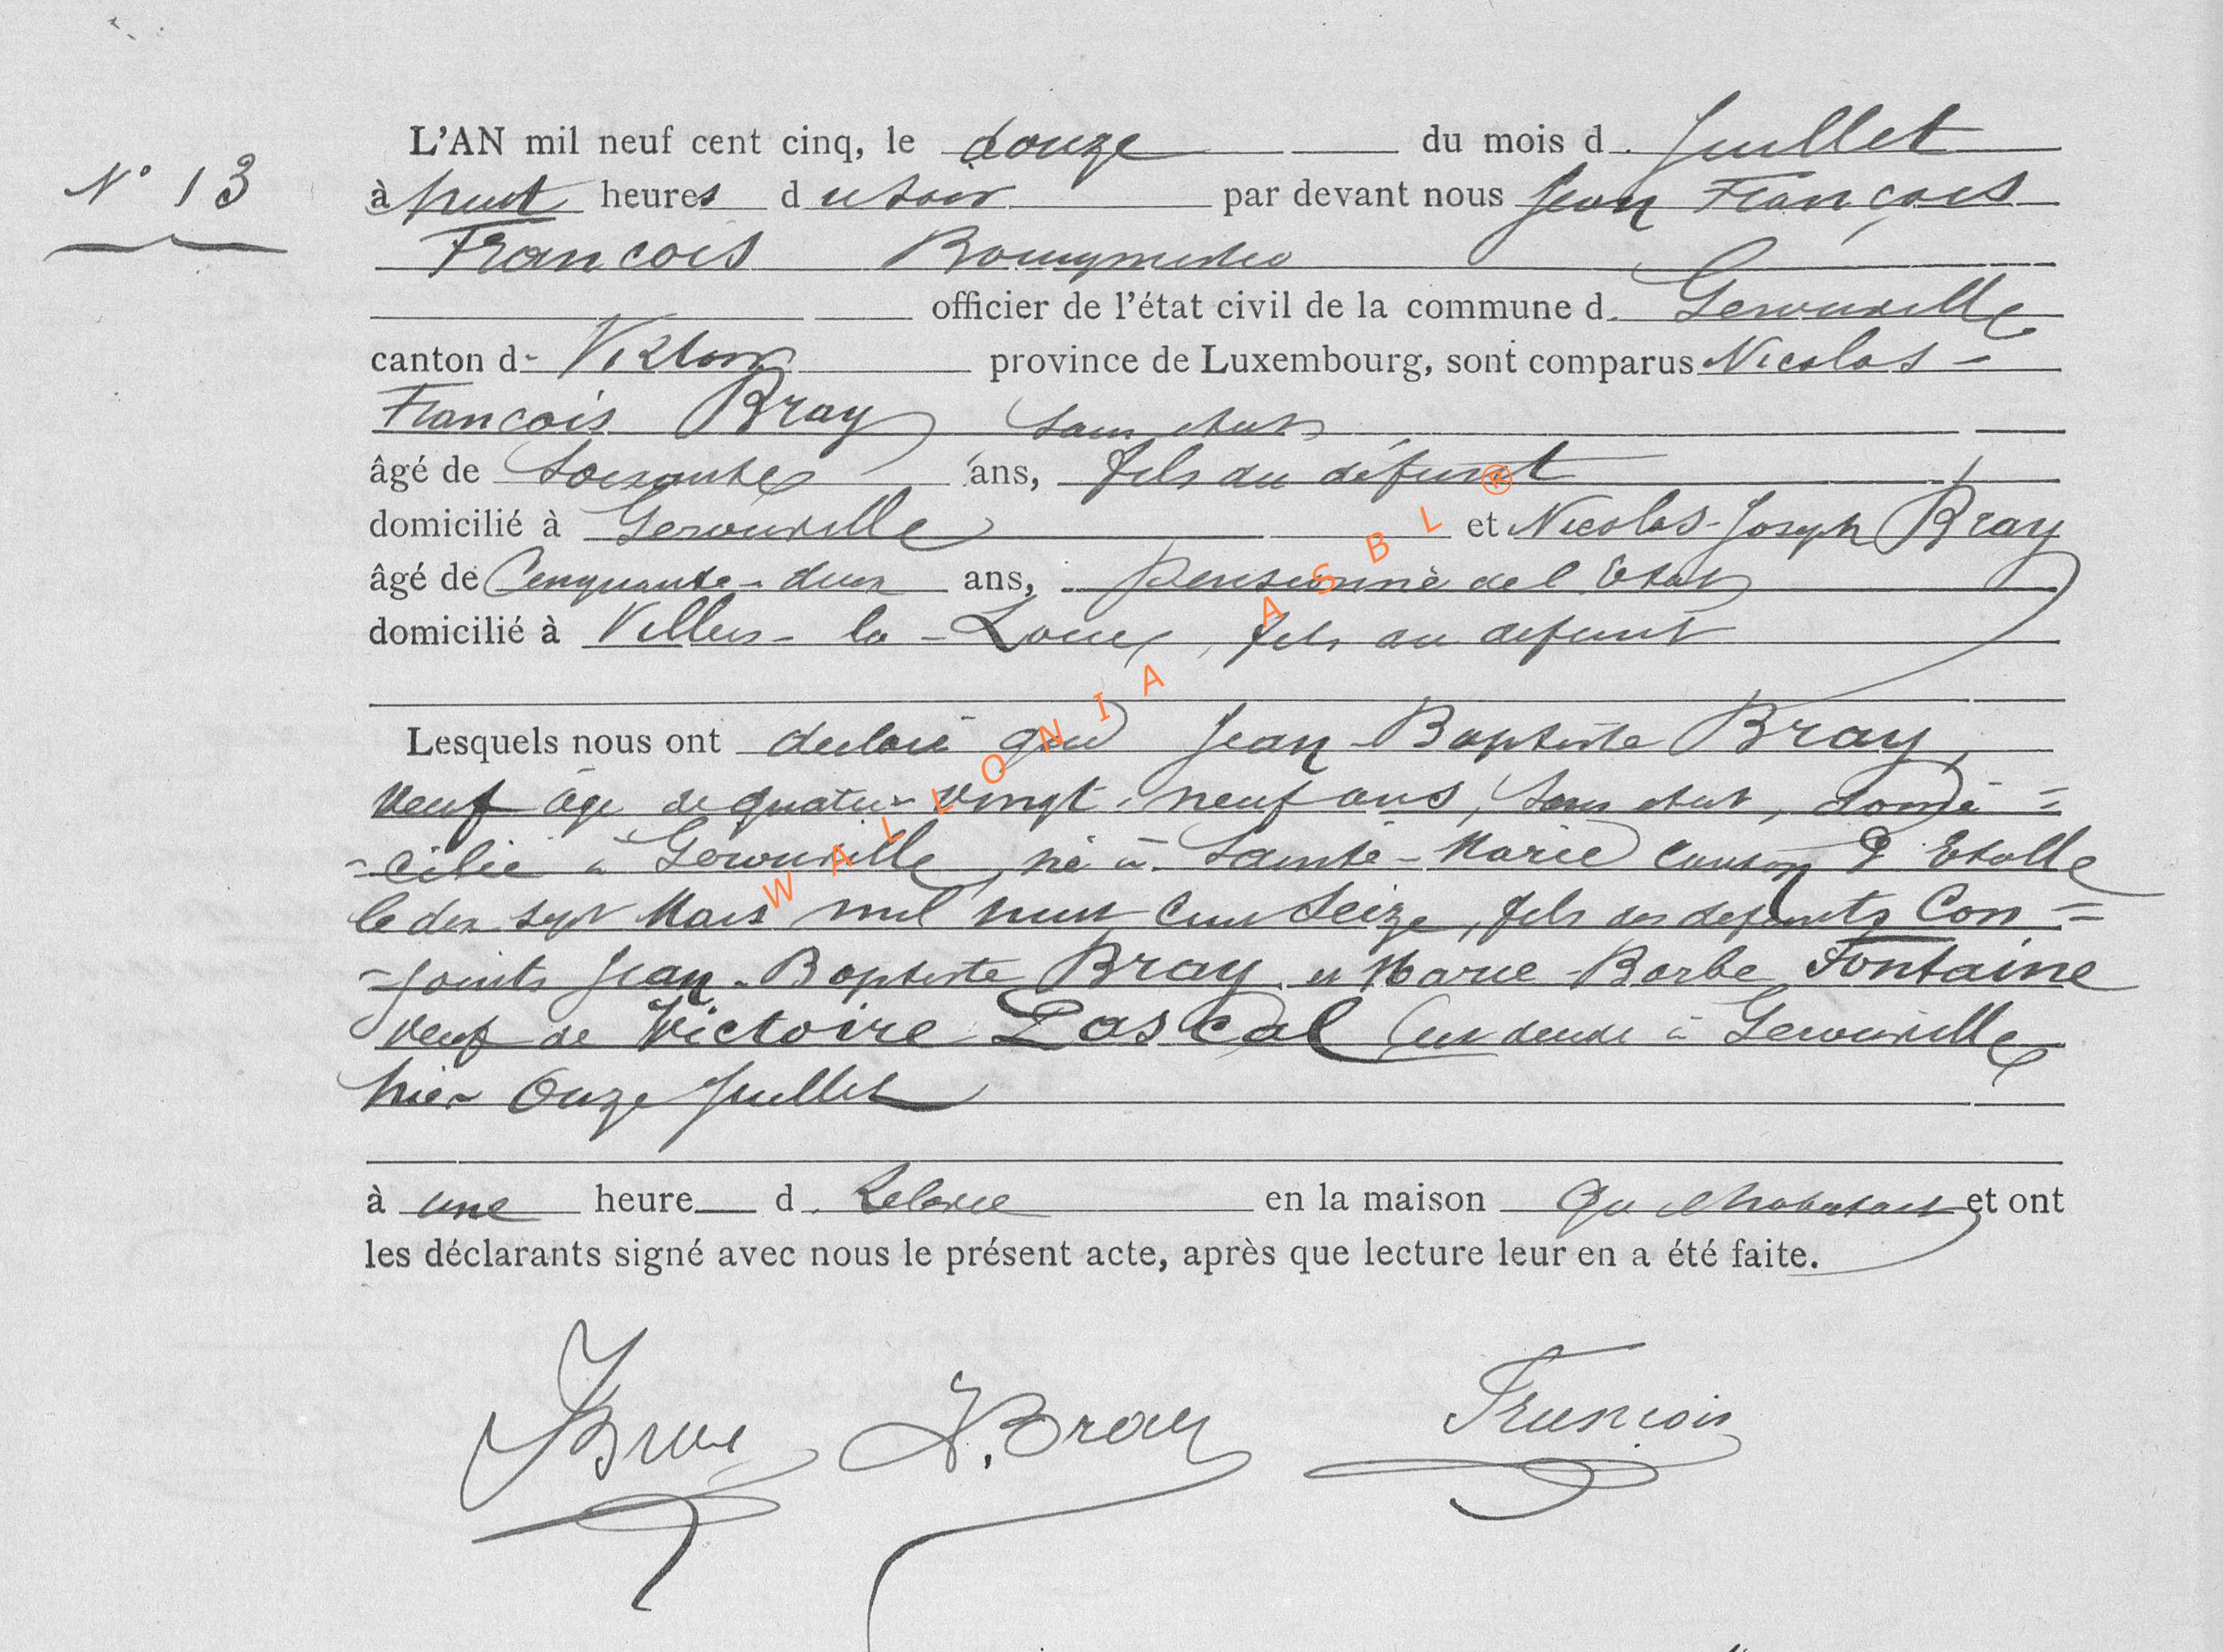 L'AN mil neuf cent cinq, le douze du mois d Juillet
N° 13
à huit heures du soir par devant nous Jean François
François Bourgmestre
officier de l'état civil de la commune d Gerouville
canton d Virton province de Luxembourg, sont comparus Nicolas-
François Bray sans état
âgé de soixante ans, fils du défunt
domicilié à Gerouville et Nicolas-Joseph Bray
âgé de Cinquante-deux ans, pensionné de l'Etat
domicilié à Villers-la-Loue, fils du défunt
Lesquels nous ont déclaré que Jean-Baptiste Bray,
veuf âgé de quatre-vingt-neuf ans, sans état, domi=
=cilié à Gerouville, né à Sainte-Marie canton d'Etalle
le dix sept Mars mil huit cent seize, fils des défunts Con=
=joints Jean-Baptiste Bray et Marie-Barbe Fontaine
veuf de Victoire Pascal est décédé à Gerouville
hier Onze Juillet
à une heure d en la maison qu'il habitait et ont
les déclarants signé avec nous le présent acte, après que lecture leur en a été faite.
Bray N.Bray François
WALLONIA ASBL ®